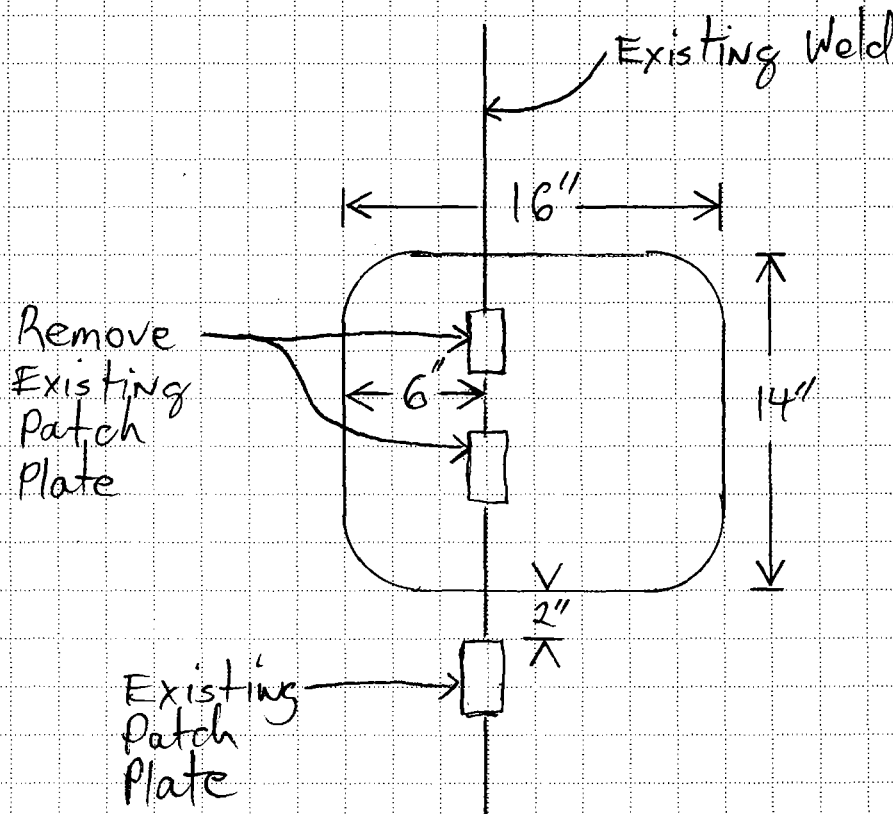 Existing Weld
16"
Remove
Existing
Patch
Plate
6"
14"
2"
Existing
Patch
Plate